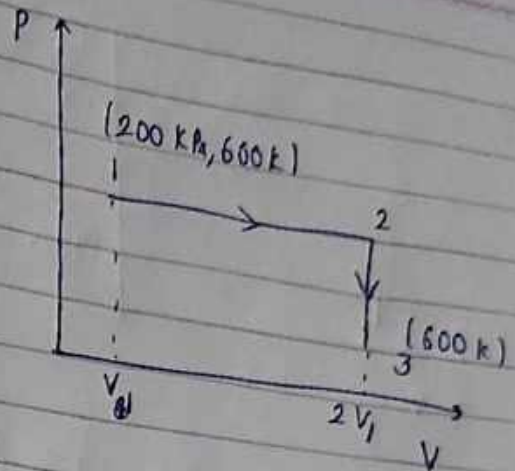 P
(200 KPa, 600k)
2
(600 k)
3
V₁
2 V₁
V